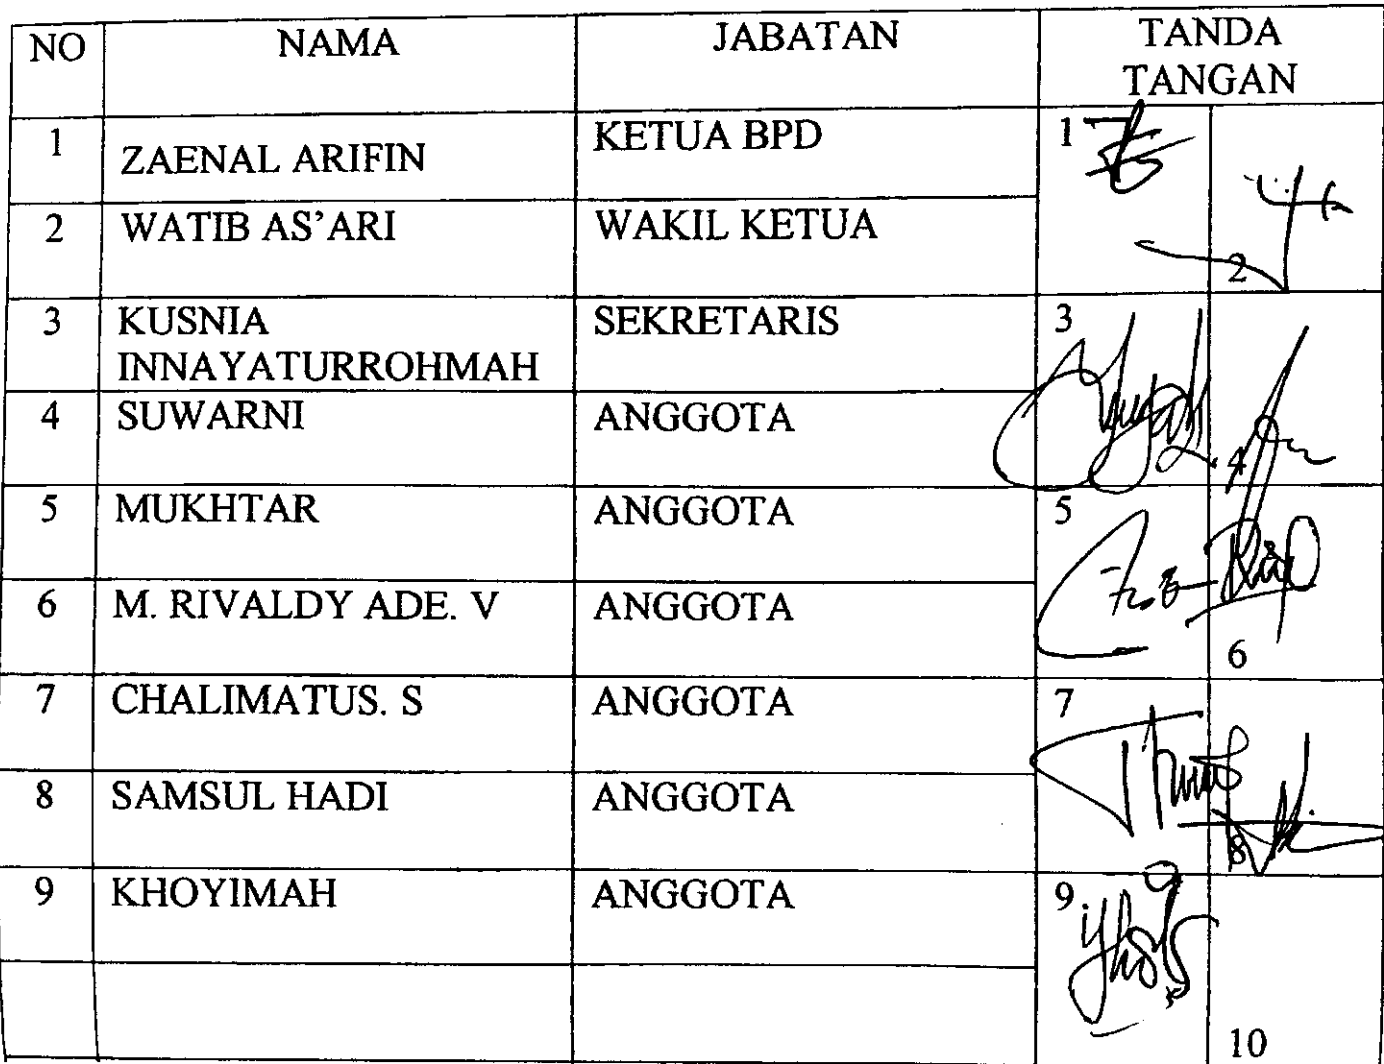 NO NAMA JABATAN TANDA
TANGAN
1 ZAENAL ARIFIN KETUA BPD 1
2 WATIB AS'ARI WAKIL KETUA 2
3 KUSNIA SEKRETARIS 3
INNAYATURROHMAH
4 SUWARNI ANGGOTA 4
5 MUKHTAR ANGGOTA 5
6 M. RIVALDY ADE. V ANGGOTA 6
7 CHALIMATUS. S ANGGOTA 7
8 SAMSUL HADI ANGGOTA 8
9 KHOYIMAH ANGGOTA 9
10